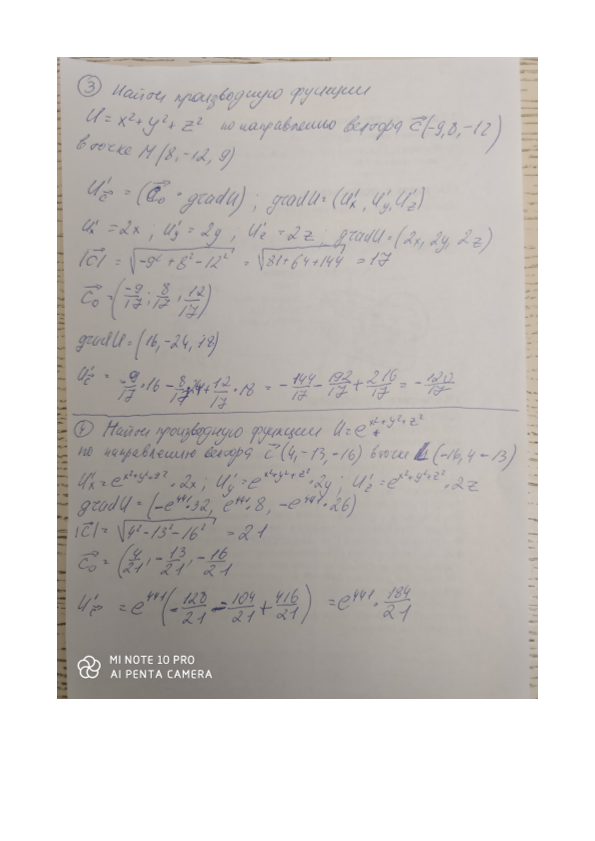 ③ Найти производную функции
U = x² + y² + z² по направлению вектора c⃗(-9,8,-12)
в точке M(8,-12,9)
U'c⃗ = (c⃗₀ · gradU); gradU = (U'x, U'y, U'z)
U'x = 2x; U'y = 2y, U'z = 2z; gradU = (2x, 2y, 2z)
|c⃗| = √(-9² + 8² - 12²) = √(81 + 64 + 144) = 17
c⃗₀ = (-9/17; 8/17; 12/17)
gradU = (16, -24, 18)
U'c⃗ = -9/17 · 16 - 8/17 · 24 + 12/17 · 18 = -144/17 - 192/17 + 216/17 = -120/17
④ Найти производную функции U = e^(x²+y²+z²)
по направлению вектора c⃗(4,-13,-16) в точке L(-16,4-13)
U'x = e^(x²+y²+z²) · 2x; U'y = e^(x²+y²+z²) · 2y; U'z = e^(x²+y²+z²) · 2z
gradU = (-e^441 · 32, e^441 · 8, -e^441 · 26)
|c⃗| = √(4² - 13² - 16²) = 21
c⃗₀ = (4/21, -13/21, -16/21
U'c⃗ = e^441 (-128/21 - 104/21 + 416/21) = e^441 · 184/21
MI NOTE 10 PRO
AI PENTA CAMERA